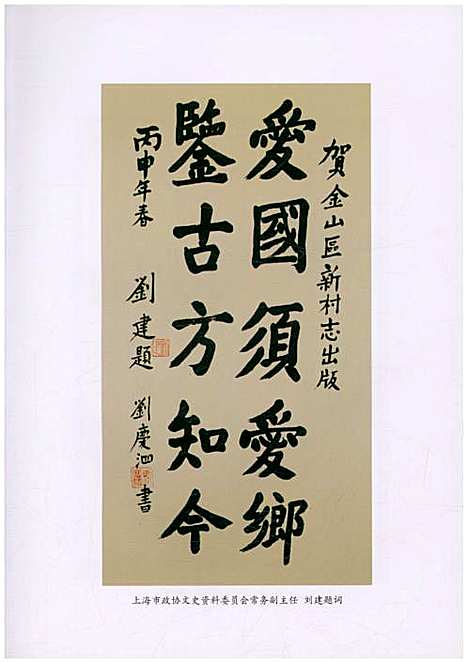 賀金山區新村志出版
愛國須愛鄉
鑒古方知今
丙申年春 劉建題 劉慶泗書
上海市政协文史资料委员会常务副主任 刘建题词